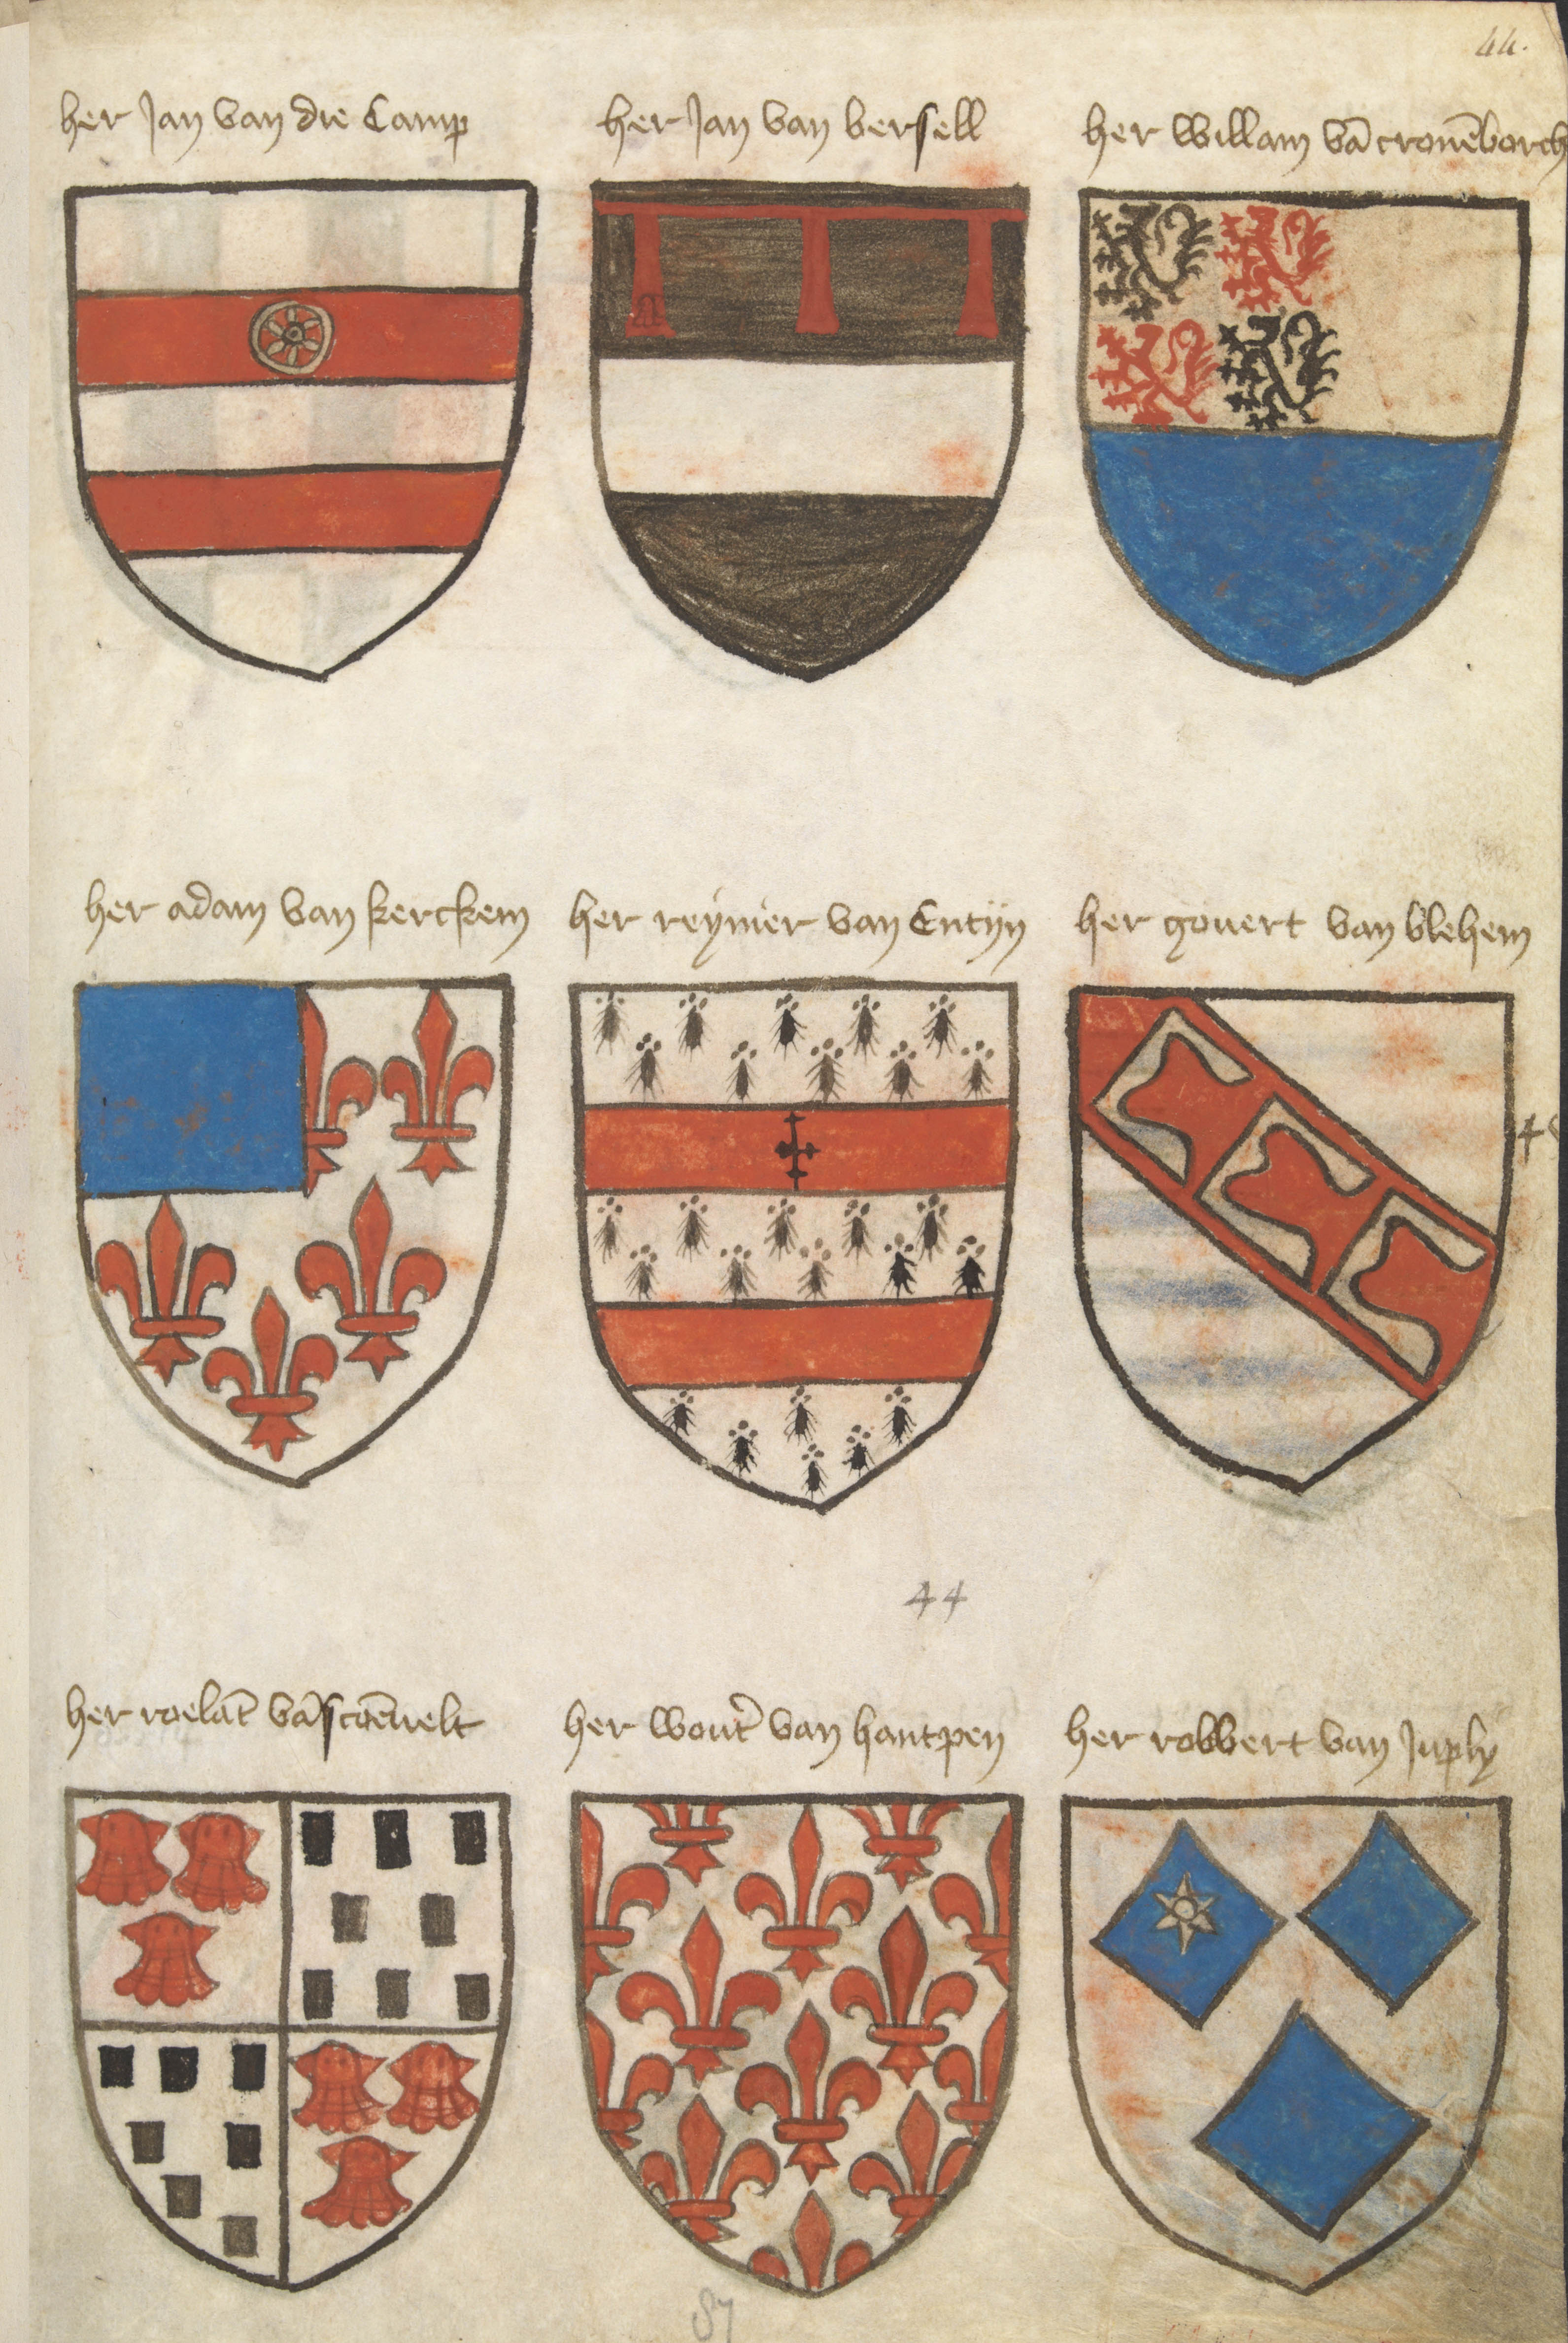 44.
her Jan van die Camp
her Jan van bersell
her willam vā cronēborch
her adam van kerckem
her reynier van Entijn
her govert van vlehem
44
her roelāt vā scoēvelt
her wout̄ van hantpen
her robbert van Juply
87